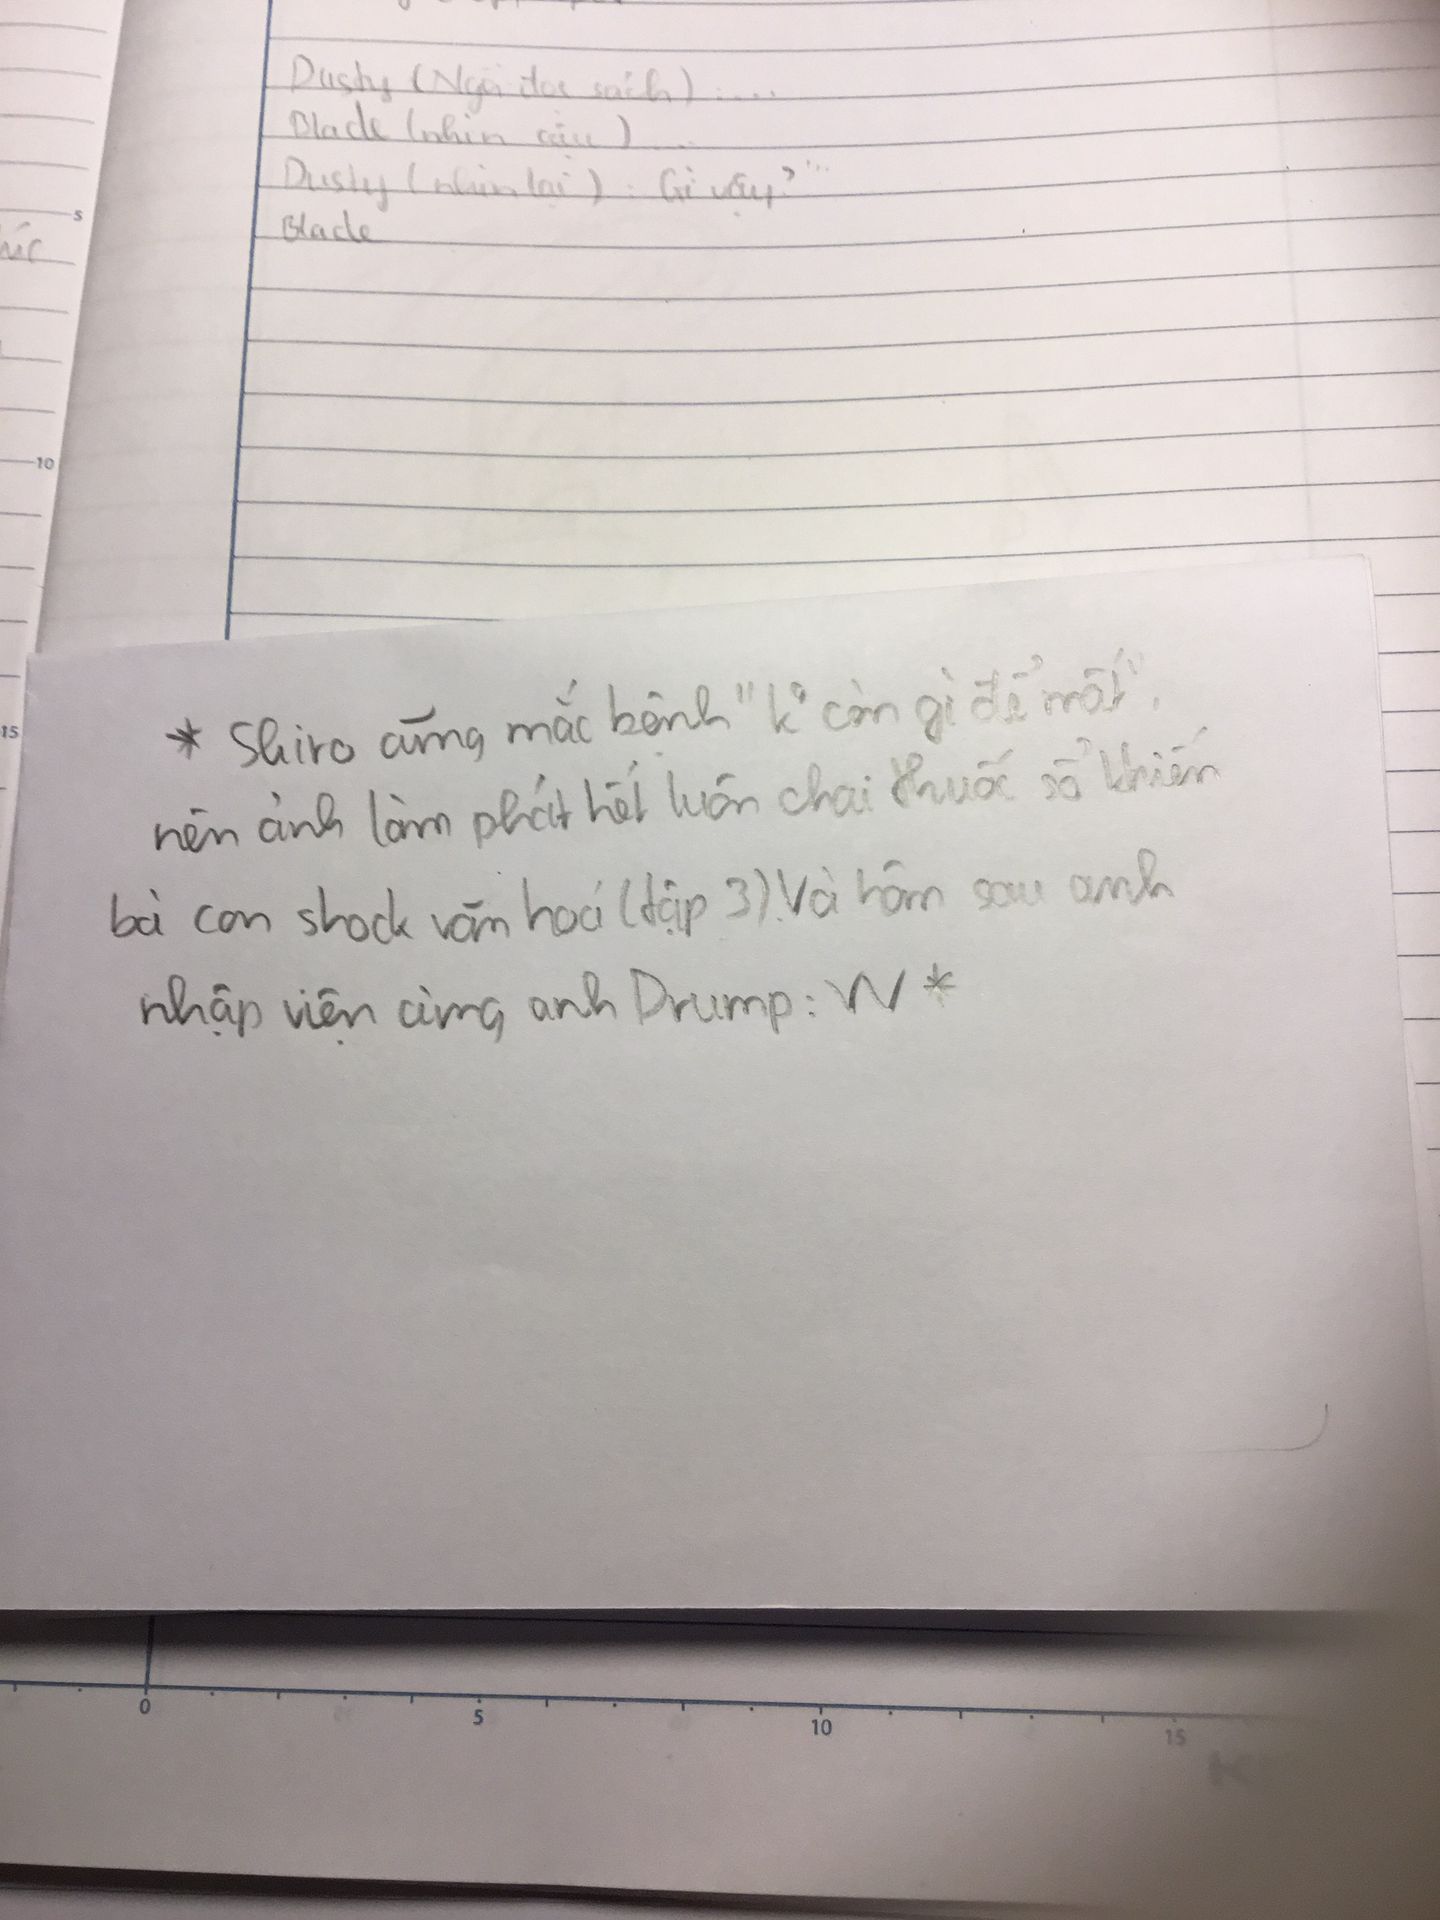 Dusty (Ngồi đọc sách) : ....
Blade (nhìn cậu) ...
Dusty (nhìn lại) : Gì vậy?
Blade
5
10
15
* Shiro cũng mắc bệnh "k° còn gì để mất".
nên ảnh làm phát hết luôn chai thuốc sổ khiến
bà con shock văn hoá (tập 3). Và hôm sau anh
nhập viện cùng anh Drump: W *
0 5 10 15